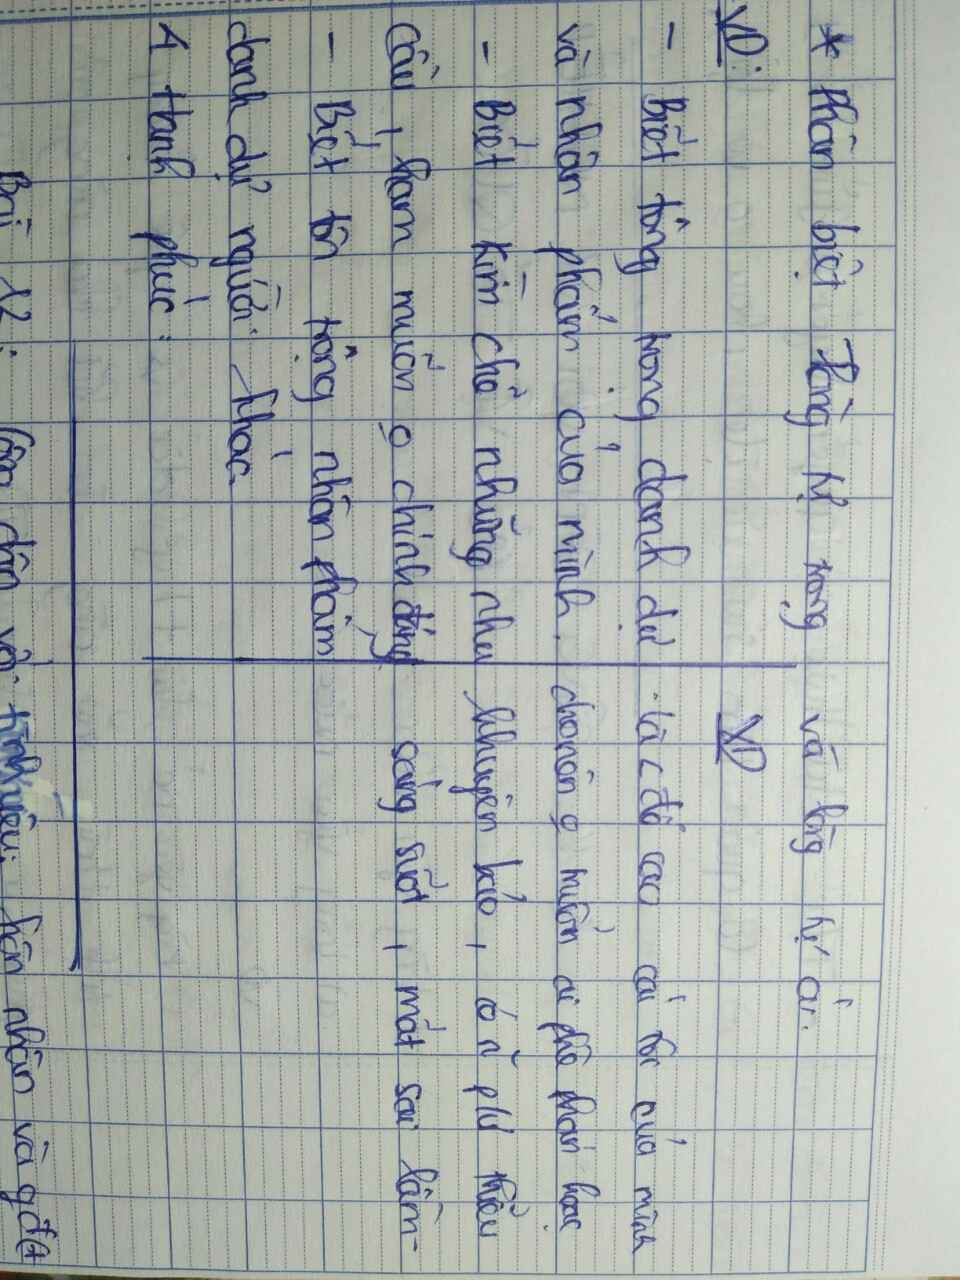 * Phân biệt lòng tự trọng và lòng tự ái.
VD: VD
- Biết tông trong danh dự là c đề cao cái tôi của mình
và nhân phẩm của mình. chonên o muốn ai phê phán hoặc
- Biết kìm chế những nhu khuyên bảo, có n~ p/ư thiếu
cầu, ham muốn o chính đáng sáng suốt, mắt sai lầm-
- Biết tôn trọng nhân phẩm
danh dự người khác.
4 Hạnh phúc:
Bài 12: Công dân với tình yêu, hôn nhân và gđ(t